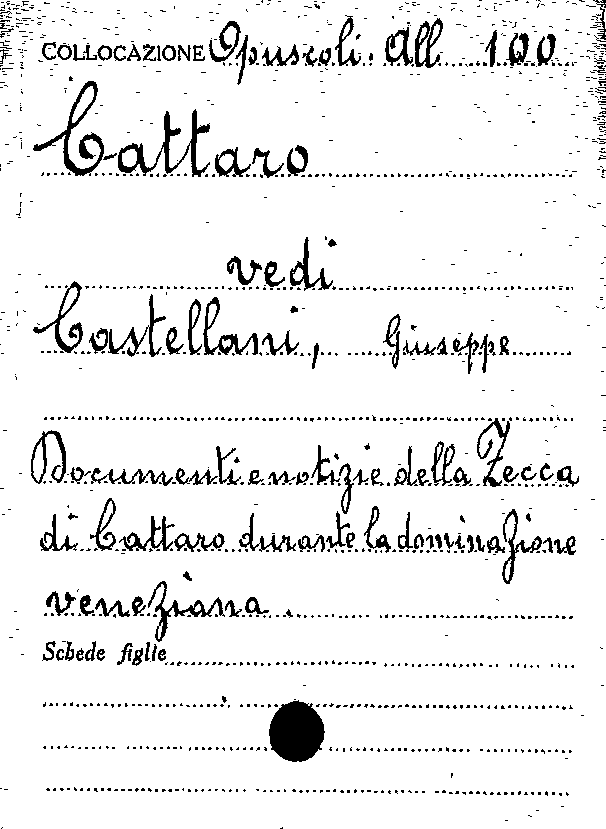 COLLOCAZIONE Opuscoli. All 100
Cattaro
vedi
Castellani, Giuseppe
Documenti e notizie della Zecca
di Cattaro durante la dominazione
veneziana.
Schede figlie